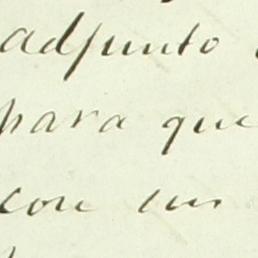 adjunto
para que
con un